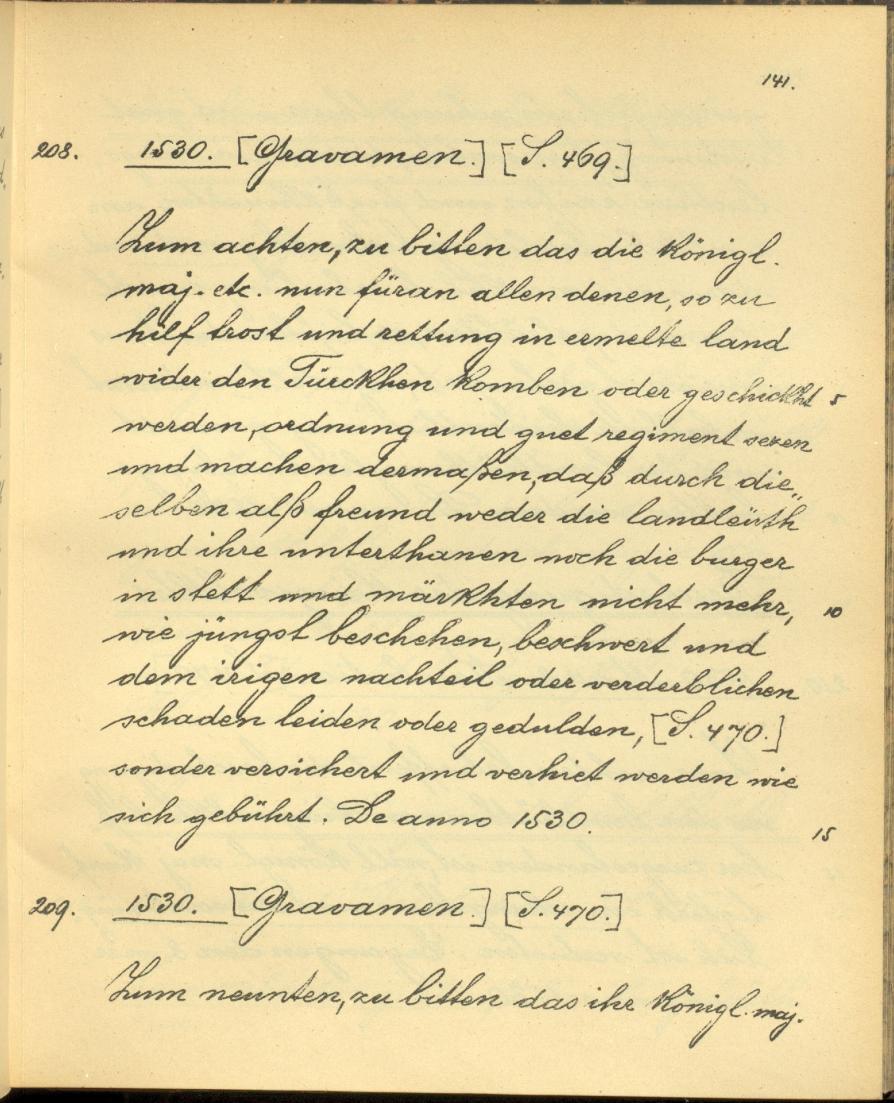 141.
208. 1530. [Gravamen.] [S. 469.]
Zum achten, zu bitten das die königl.
maj. etc. nun füran allen denen, so zu
hilf trost und rettung in ermelte land
wider den Türckhen komben oder geschickht 5
werden, ordnung und guet regiment sezen
und machen dermaßen, daß durch die„
selben alß freund weder die landleüth
und ihre unterthanen noch die burger
in stett und märkhten nicht mehr, 10
wie jüngst beschehen, beschwert und
dem irigen nachteil oder verderblichen
schaden leiden oder gedulden, [S. 470.]
sonder versichert und verhiet werden wie
sich gebührt. De anno 1530. 15
209. 1530. [Gravamen.] [S. 470.]
Zum neunten, zu bitten das ihr königl. maj.